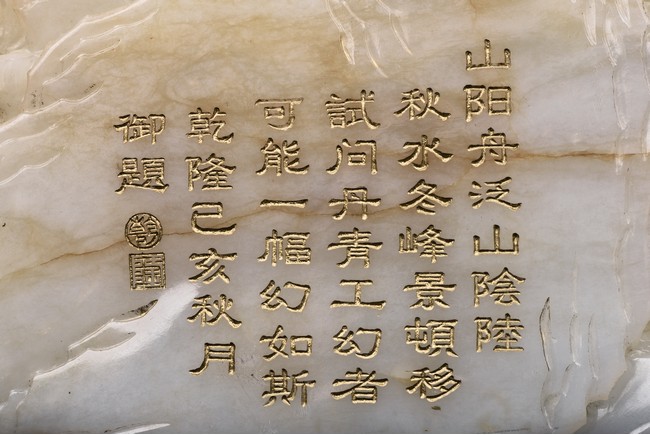 山阳舟泛山陰陸
秋水冬峰景頓移
試问丹青工幻者
可能一幅幻如斯
乾隆己亥秋月
御題